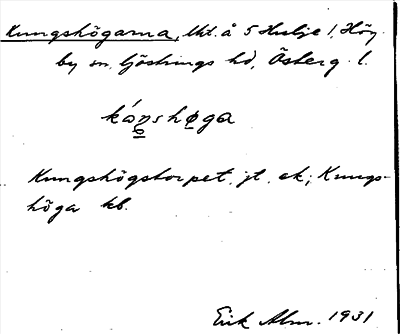 Kungshögarna, Utt. å 5 Hulje 1, Hög-
by sn, Göstrings hd, Österg. l.
kóŋshøga
Kungshögstorpet, jt. ek; Kungs-
höga kb.
Erik Alm. 1931